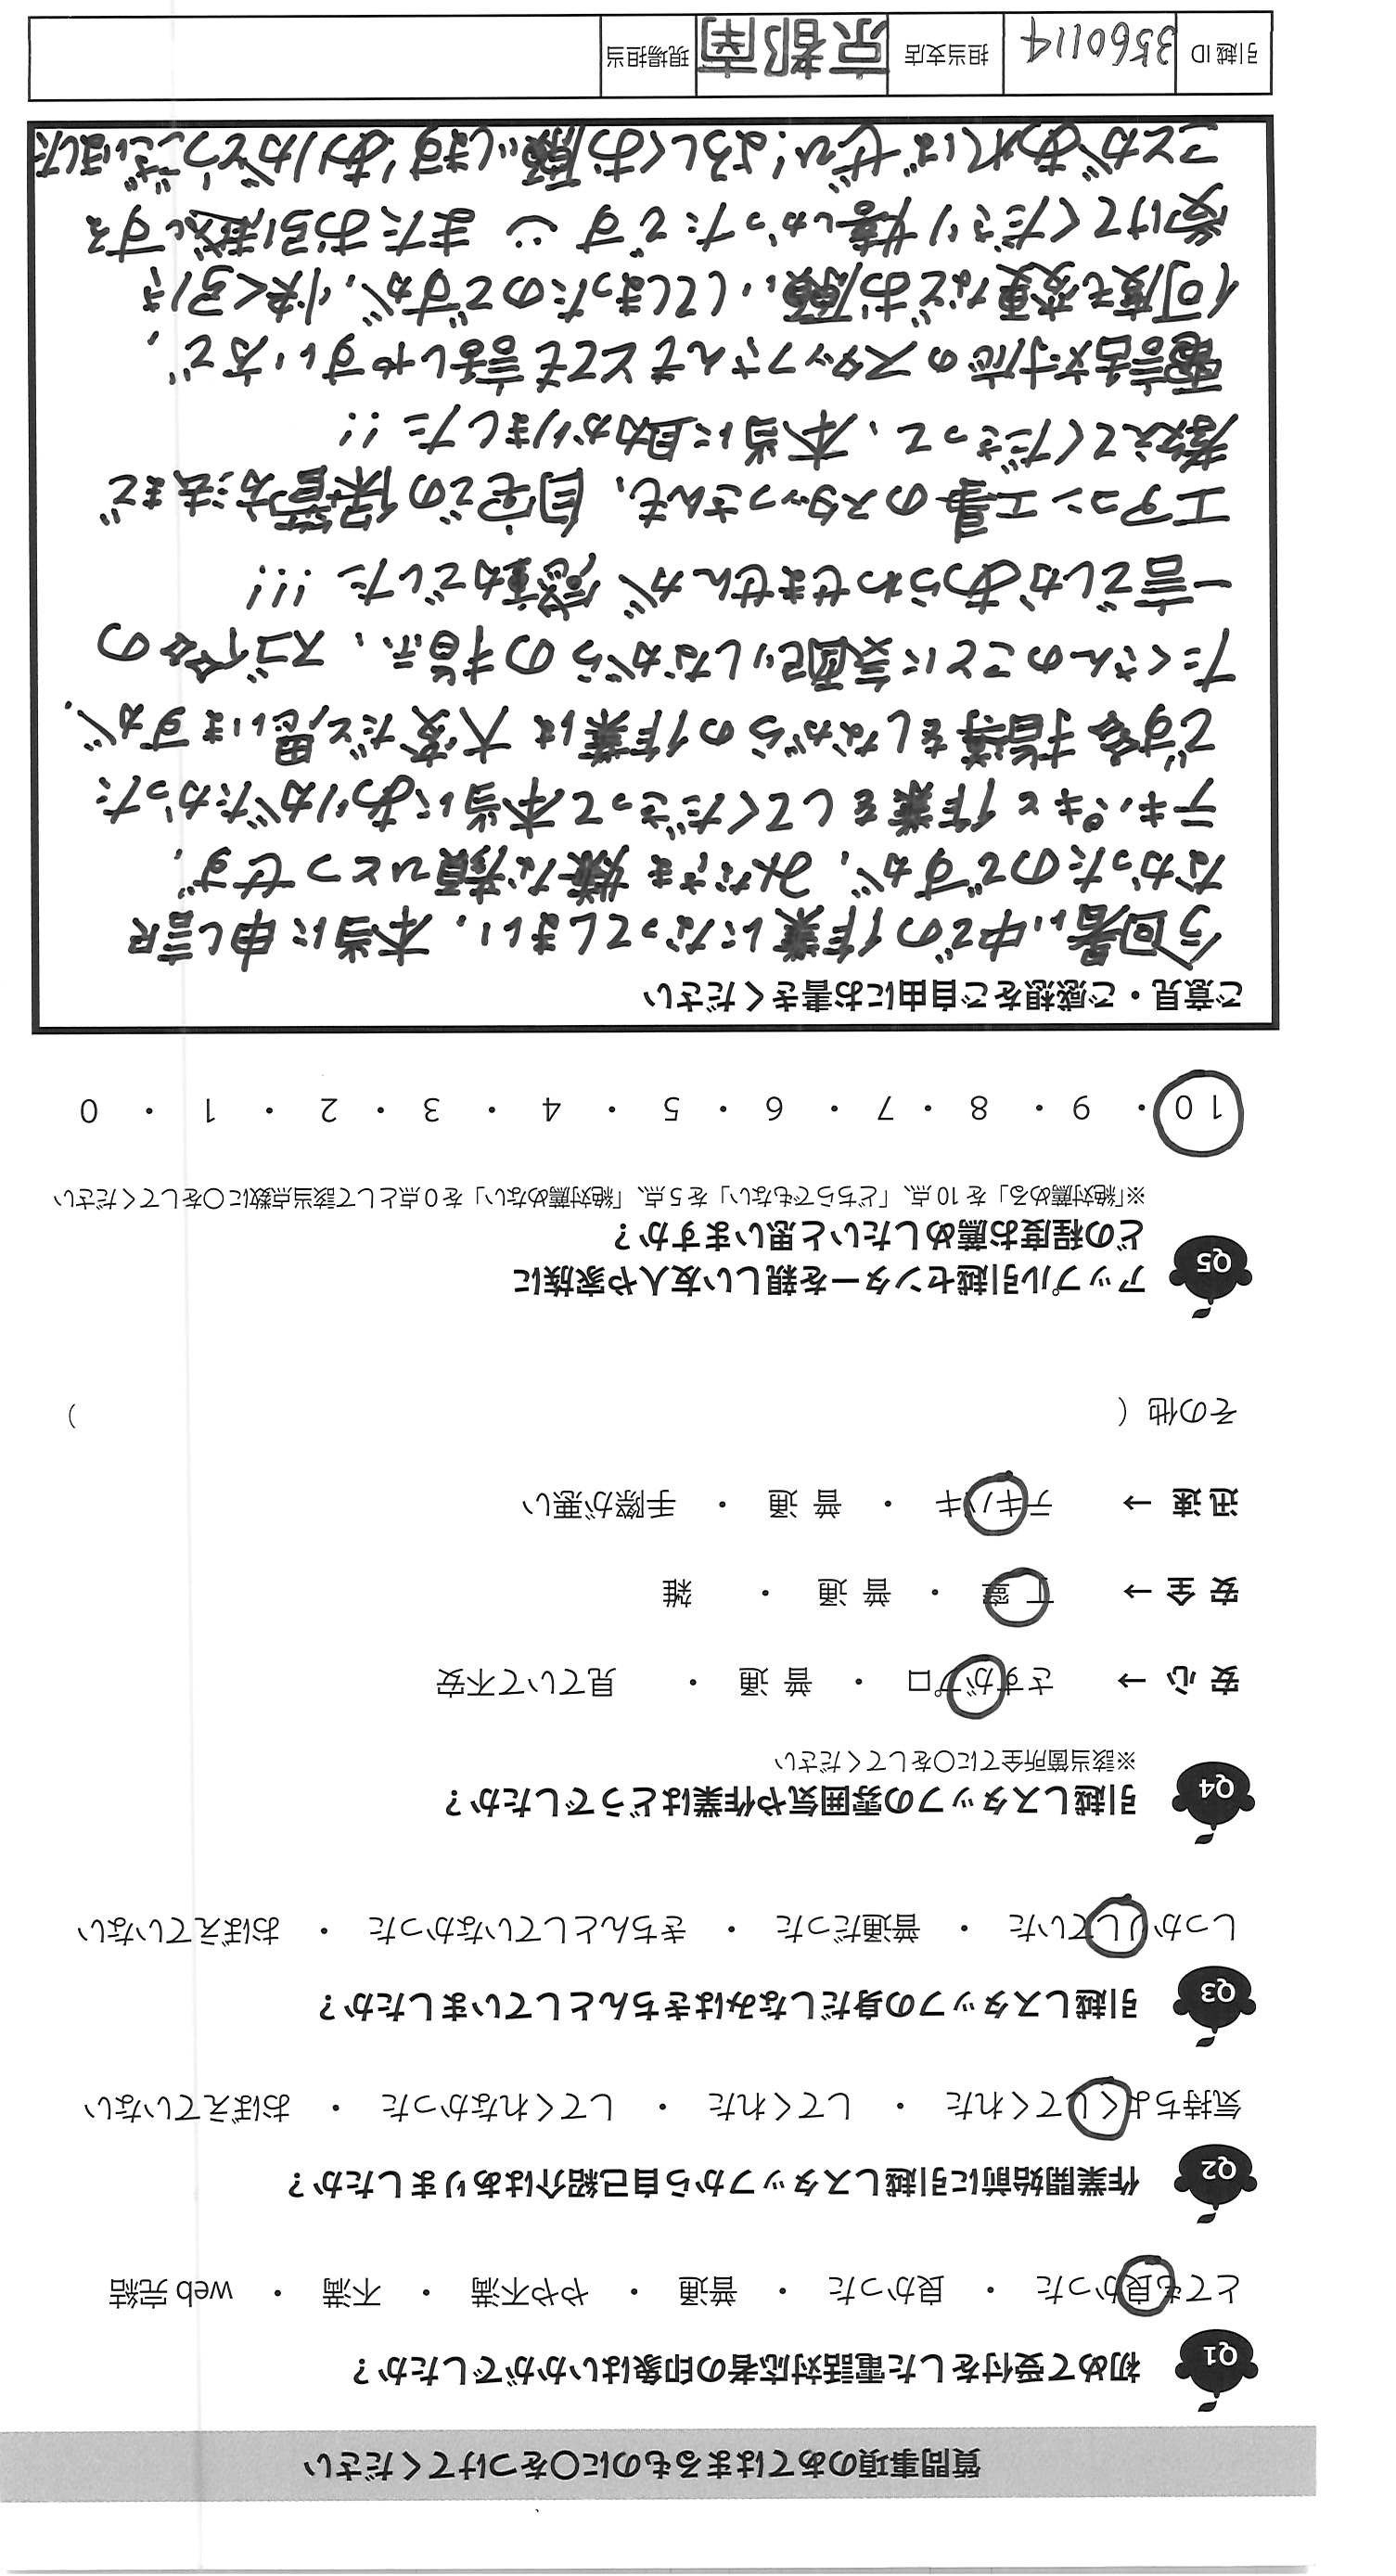 質問事項のあてはまるものに○をつけてください
Q1 初めて受付をした電話対応者の印象はいかがでしたか？
とても良かった ・ 良かった ・ 普通 ・ やや不満 ・ 不満 ・ web 完結
Q2 作業開始前に引越しスタッフから自己紹介はありましたか？
気持ちよくしてくれた ・ してくれた ・ してくれなかった ・ おぼえていない
Q3 引越しスタッフの身だしなみはきちんとしていましたか？
しっかりしていた ・ 普通だった ・ きちんとしていなかった ・ おぼえていない
Q4 引越しスタッフの雰囲気や作業はどうでしたか？
※該当箇所全てに○をしてください
安心 → さすがプロ ・ 普通 ・ 見ていて不安
安全 → 丁寧 ・ 普通 ・ 雑
迅速 → テキパキ ・ 普通 ・ 手際が悪い
その他（ ）
Q5 アップル引越センターを親しい友人や家族に
どの程度お薦めしたいと思いますか？
※「絶対薦める」を 10 点、「どちらでもない」を 5 点、「絶対薦めない」を 0 点として該当点数に○をしてください
10 ・ 9 ・ 8 ・ 7 ・ 6 ・ 5 ・ 4 ・ 3 ・ 2 ・ 1 ・ 0
ご意見・ご感想をご自由にお書きください
今回暑い中での作業になってしまい、本当に申し訳
なかったのですが、みなさま嫌な顔ひとつせず、
テキパキと作業をしてくださって本当にありがたかった
です。指導をしながらの作業は大変だと思いますが、
たくさんのことに気配りしながらの指示、スゴイ々の
一言でしかあらわせませんが感動でした!!!
エアコン工事のスタッフさんも、自宅での保管方法まで
教えてくださって、本当に助かりました!!
電話対応のスタッフさんもとても話しやすい方で、
何度も変更などお願いしてしまったのですが、快く引き
受けてくださり嬉しかったです またお引越しする
ことがあればぜひ!よろしくお願いします!ありがとうございました
引越 ID 3560114 担当支店 京都南 現場担当